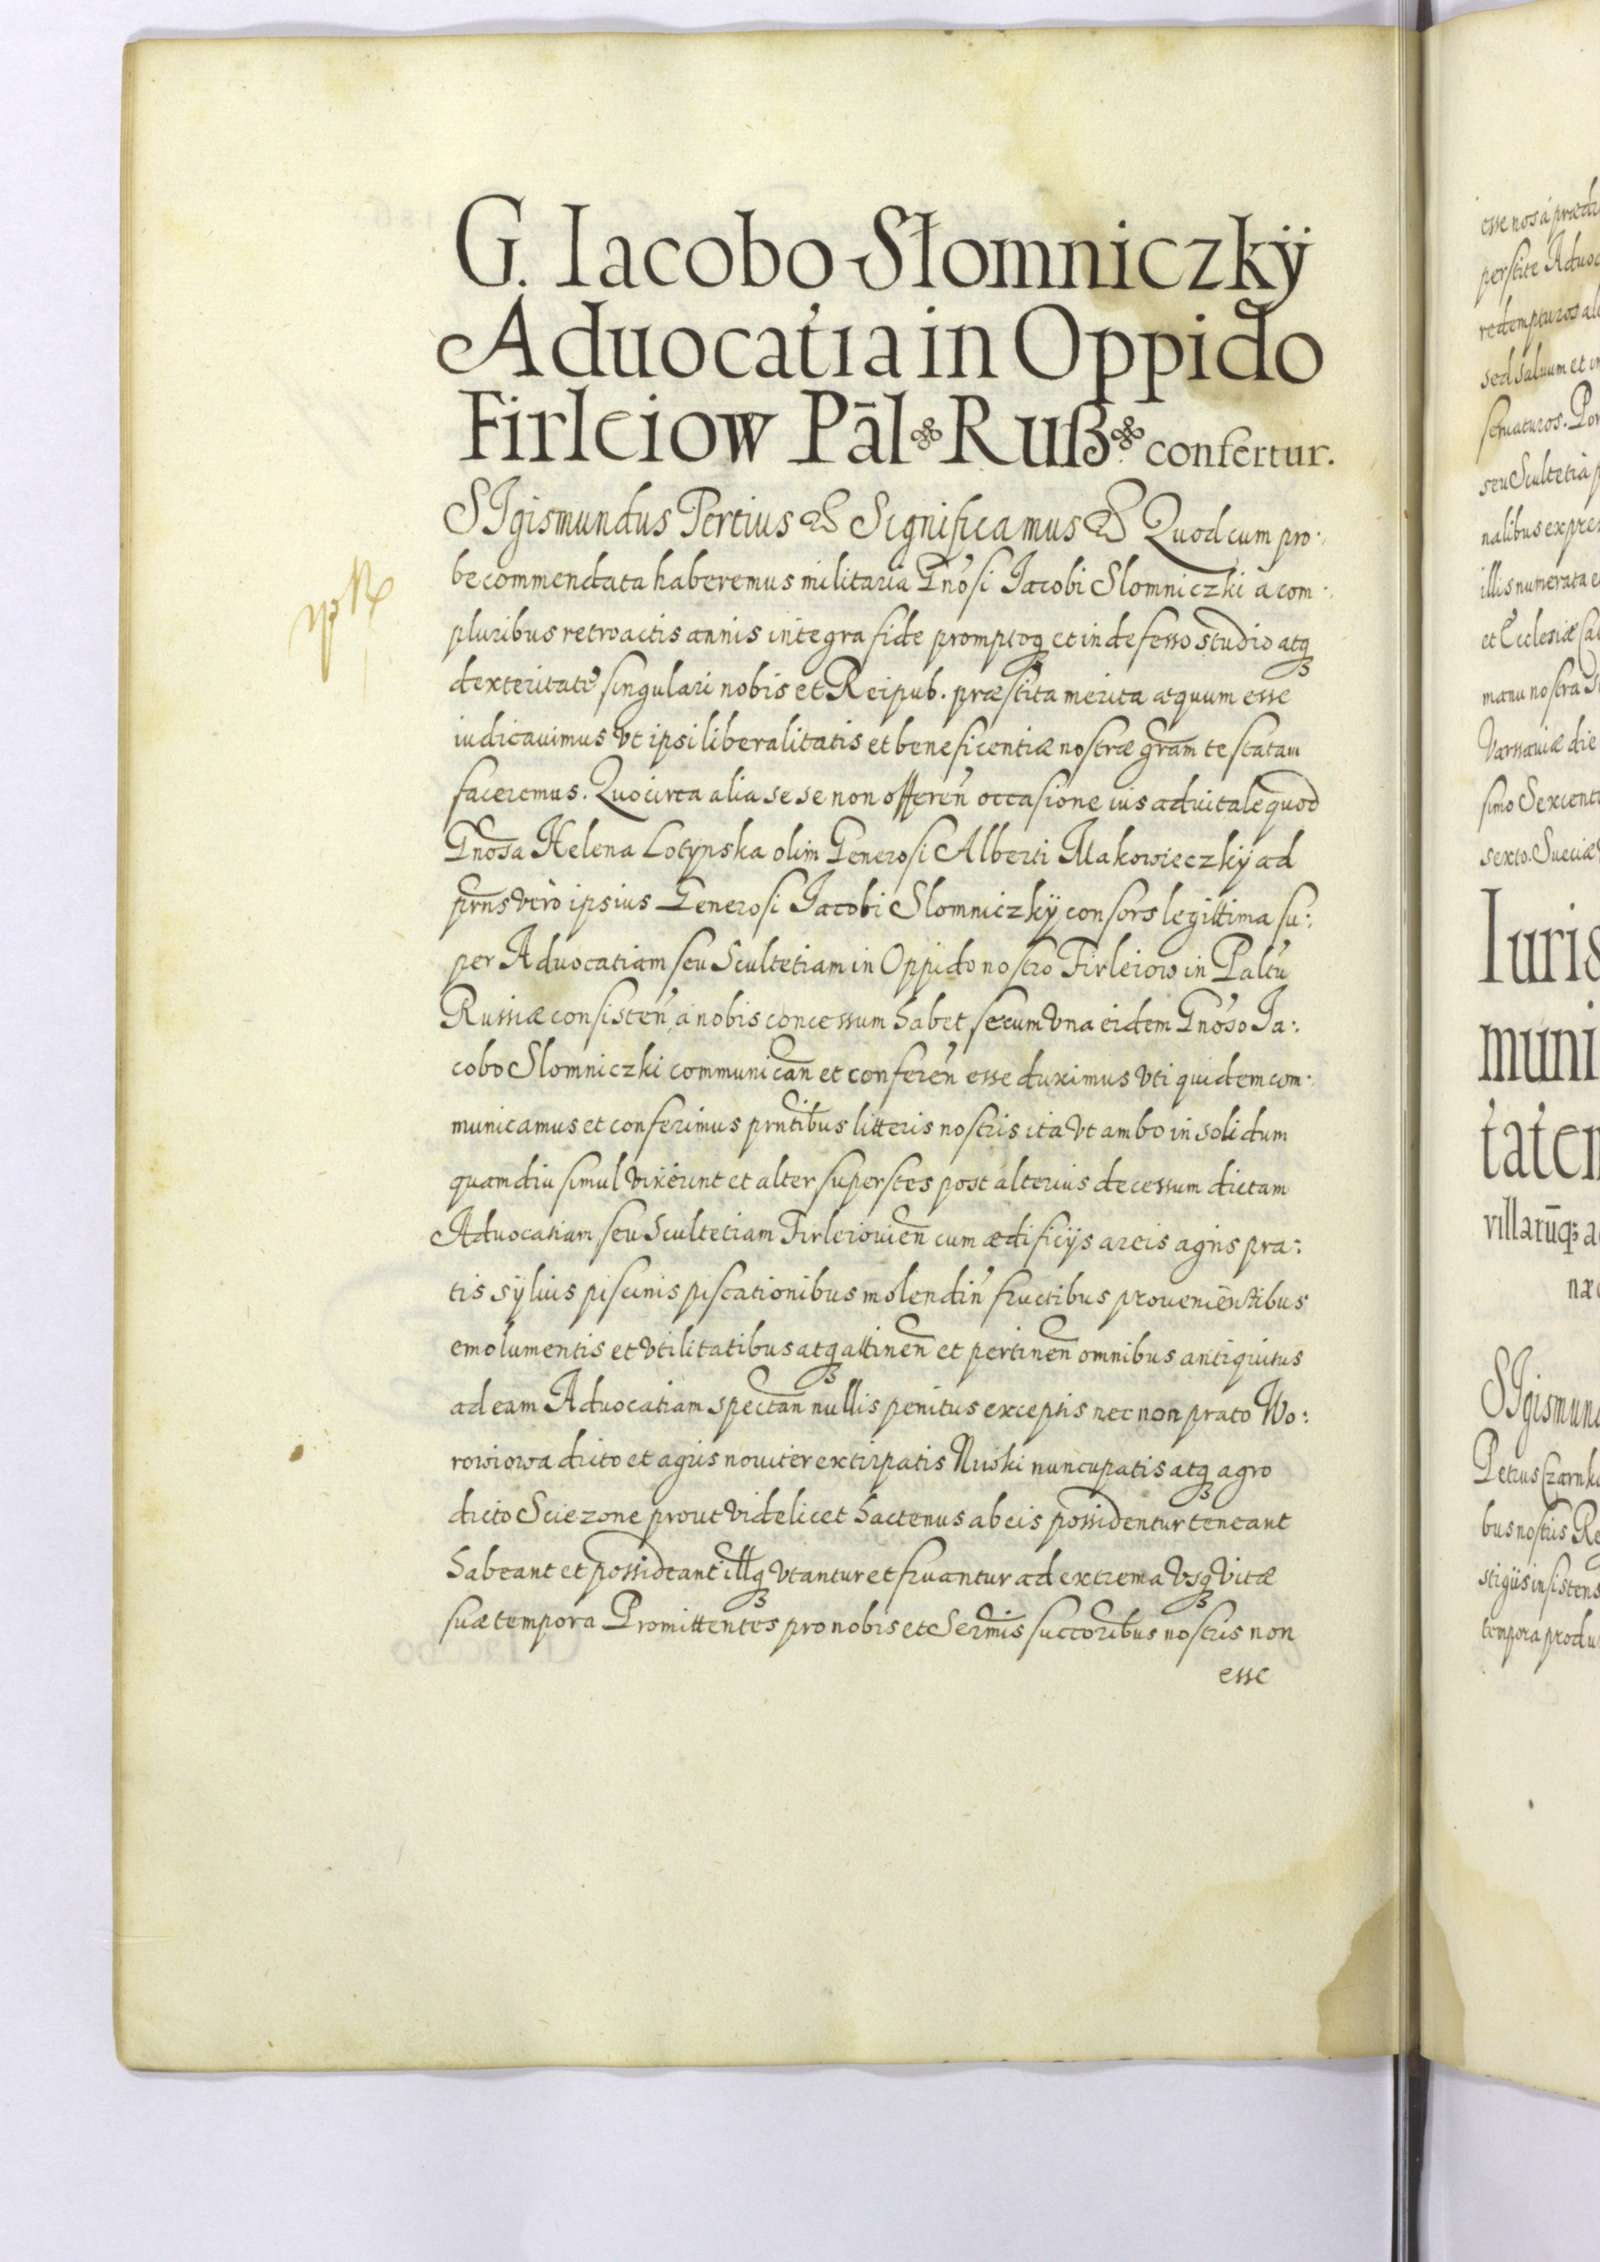 G. Iacobo Słomniczkÿ
Aduocatia in Oppido
Firleiow Pāl Ruß confertur.
SIgismundus Tertius & Significamus & Quod cum pro:
be commendata haberemus militaria Gnosi Iacobi Slomniczki a com:
pluribus retroactis annis integra fide promptoq et indefesso studio atq
dexteritate singulari nobis et Reipub. præstita merita æquum esse
iudicauimus vt ipsi liberalitatis et beneficentiæ nostræ gram testatam
faceremus. Quocirca alia sese non offeren occasione ius aduitale quod
Gnosa Helena Lotynska olim Generosi Alberti Makowieczkÿ ad
prns vero ipsius Generosi Iacobi Slomniczkÿ consors legittima su:
per Aduocatiam seu Scultetiam in Oppido nostro Firleiow in Paltu
Russiæ consisten, a nobis concessum habet secum vna eidem Gnoso Ia:
cobo Slomniczki communican et conferen esse duximus vti quidem com:
municamus et conferimus prntibus litteris nostris ita vt ambo in solidum
quamdiu simul vixerint et alter superstes post alterius decessum dictam
Aduocatiam seu Scultetiam Firleiouien cum ædificijs areis agris pra:
tis sÿluis piscinis piscationibus molendin fructibus prouenientibus
emolumentis et vtilitatibus atq attinen et pertinen omnibus antiquitus
ad eam Aduocatiam spectan nullis penitus exceptis nec non prato Wo:
rowiowa dicto et agris nouiter extirpatis Niwki nuncupatis atq agro
dicto Sciezone prout videlicet hactenus ab eis possidentur teneant
habeant et possideant illq vtantur et fruantur ad extrema vsq vitæ
suæ tempora Promittentes pro nobis et Sermis succoribus nostris non
esse
esse nos a præd
perstite Aduoc
redempturos al
sed saluum et in
seruaturos. Por
seu Scultetia p
nalibus expres
illis numerata e
et Ecclesiæ Ca
manu nostra S
Varsauiæ die
simo Sexcent
sexto. Sueciæ
Iuris
muni
taten
villarūq; a
næ
SIgismund
Petrus Czarnk
bus nostris Re
stigijs insistens
tempora produ